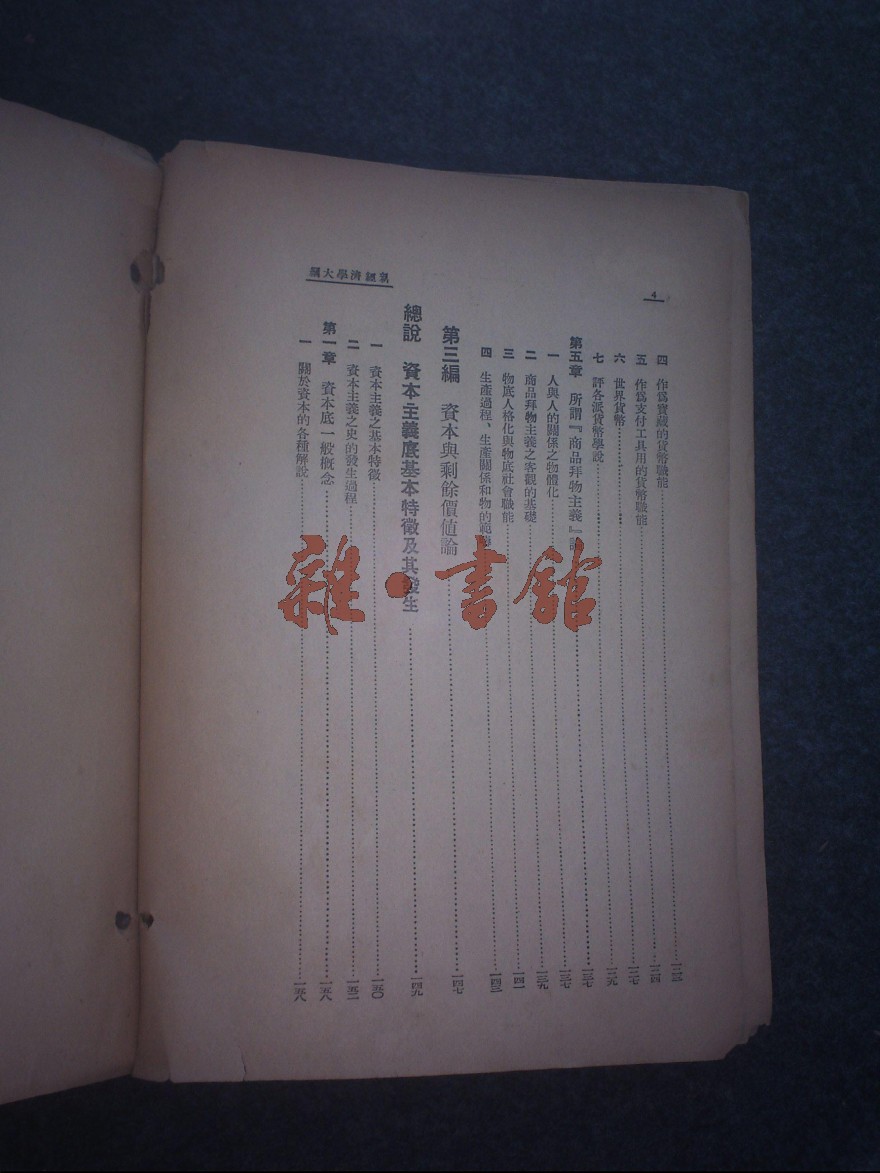 新經濟學大綱
4
四 作爲寶藏的貨幣職能 一二三
五 作爲支付工具用的貨幣職能 一二四
六 世界貨幣 一二七
七 評各派貨幣學說 一二九
第五章 所謂『商品拜物主義』 一三七
一 人與人的關係之物體化 一三七
二 商品拜物主義之客觀的基礎 一三九
三 物底人格化與物底社會職能 一四一
四 生產過程、生產關係和物的範 一四三
第三編 資本與剩餘價値論 一四七
總說 資本主義底基本特徵及其發生 一四九
一 資本主義之基本特徵 一五〇
二 資本主義之史的發生過程 一五二
第一章 資本底一般概念 一五八
一 關於資本的各種解說 一五八
雜·書館